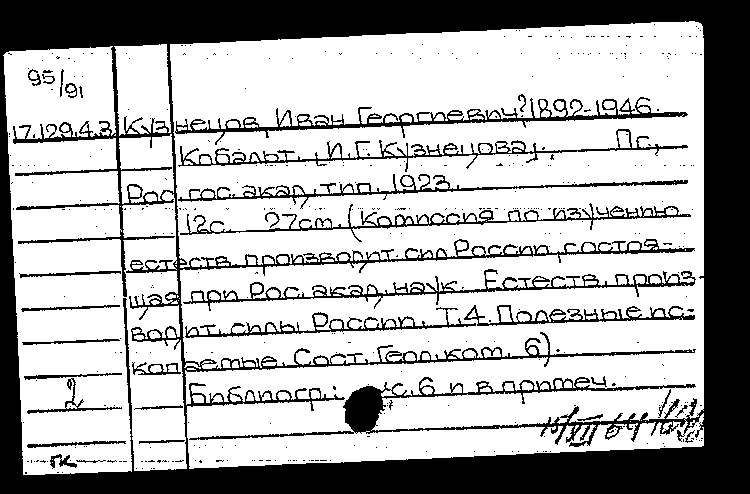 95/91
17.129.4.3 Кузнецов, Иван Георгиевич, 1892-1946.
Кобальт. [И.Г. Кузнецова]. Пг,
Рос. гос. акад. тип., 1923.
12с. 27cm. (Комиссия по изучению
естеств. производит. сил России, состоя-
щая при Рос. акад. наук. Естеств. произ-
водит. силы России. Т.4. Полезные ис-
копаемые. Сост. Геол. ком. 6).
2 Библиогр.: с. 6 и в примеч.
15/XII 64
ГК